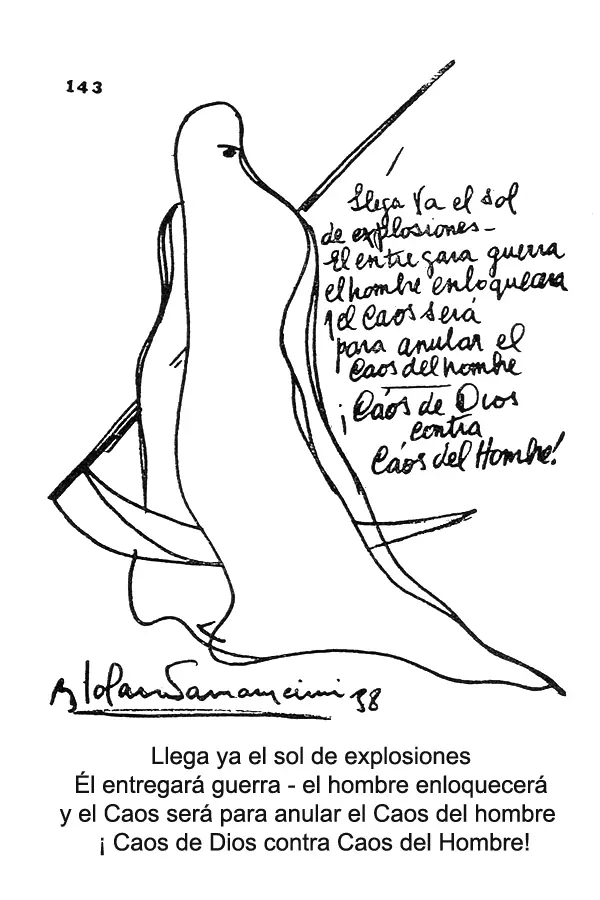 143
Llega Ya el sol
de explosiones -
El entregara guerra
el hombre enloquecera
y el Caos será
para anular el
Caos del hombre
¡Cáos de Dios
contra
Cáos del Hombre!
38
Llega ya el sol de explosiones
Él entregará guerra - el hombre enloquecerá
y el Caos será para anular el Caos del hombre
¡ Caos de Dios contra Caos del Hombre!